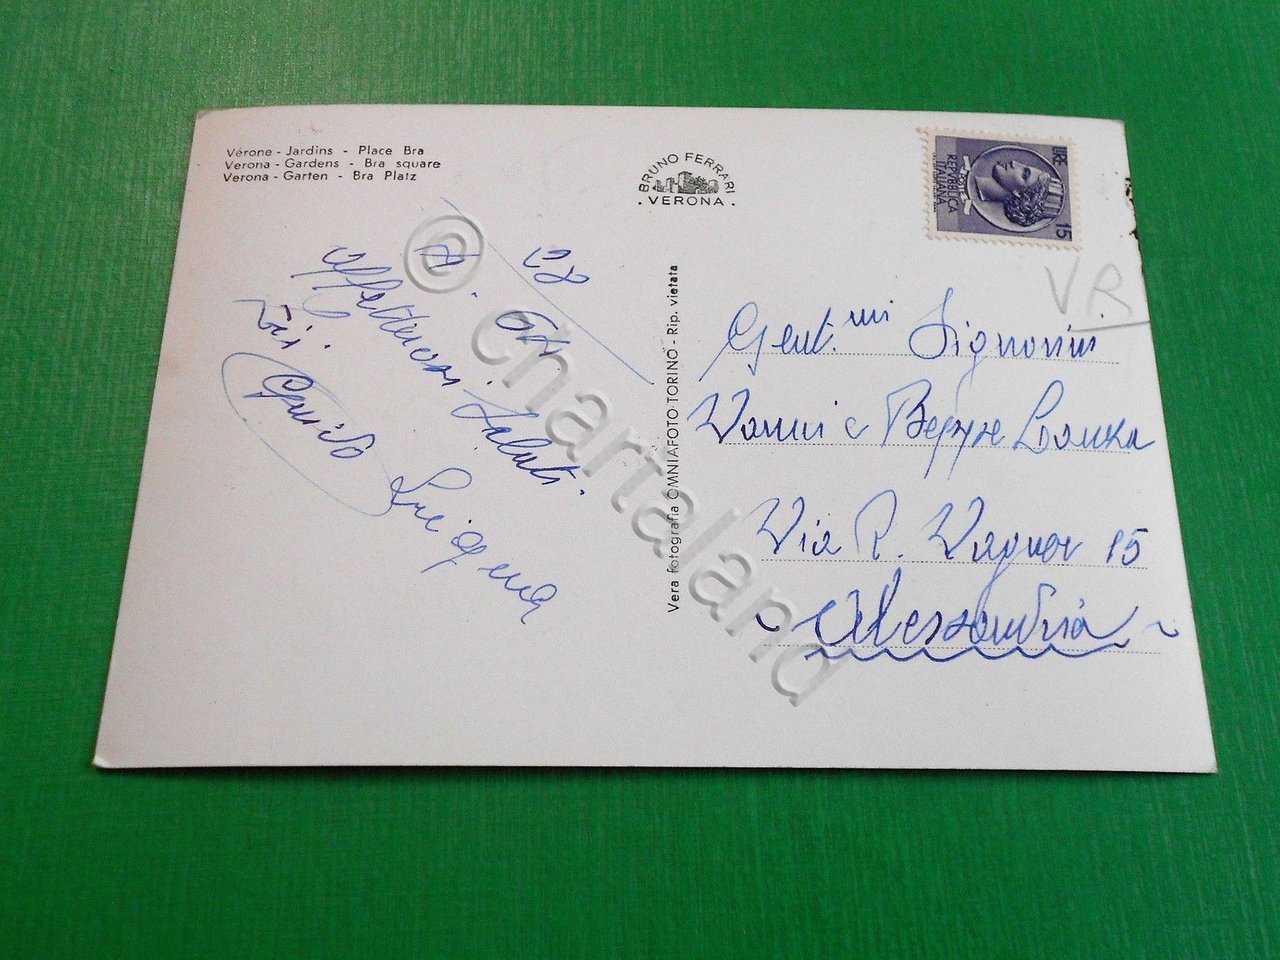 Vérone - Jardins - Place Bra
Verona - Gardens - Bra square
Verona - Garten - Bra Platz
BRUNO FERRARI
. VERONA .
LIRE
REPVBBLICA
ITALIANA
15
VR
affettuosi saluti.
Zii
Guido
Vera Fotografia OMNIAFOTO-TORINO - Rip. vietata
Gent.mi Signorini
Vanni e Beppe
Via R. Wagner 15
Alessandria
© chartaland